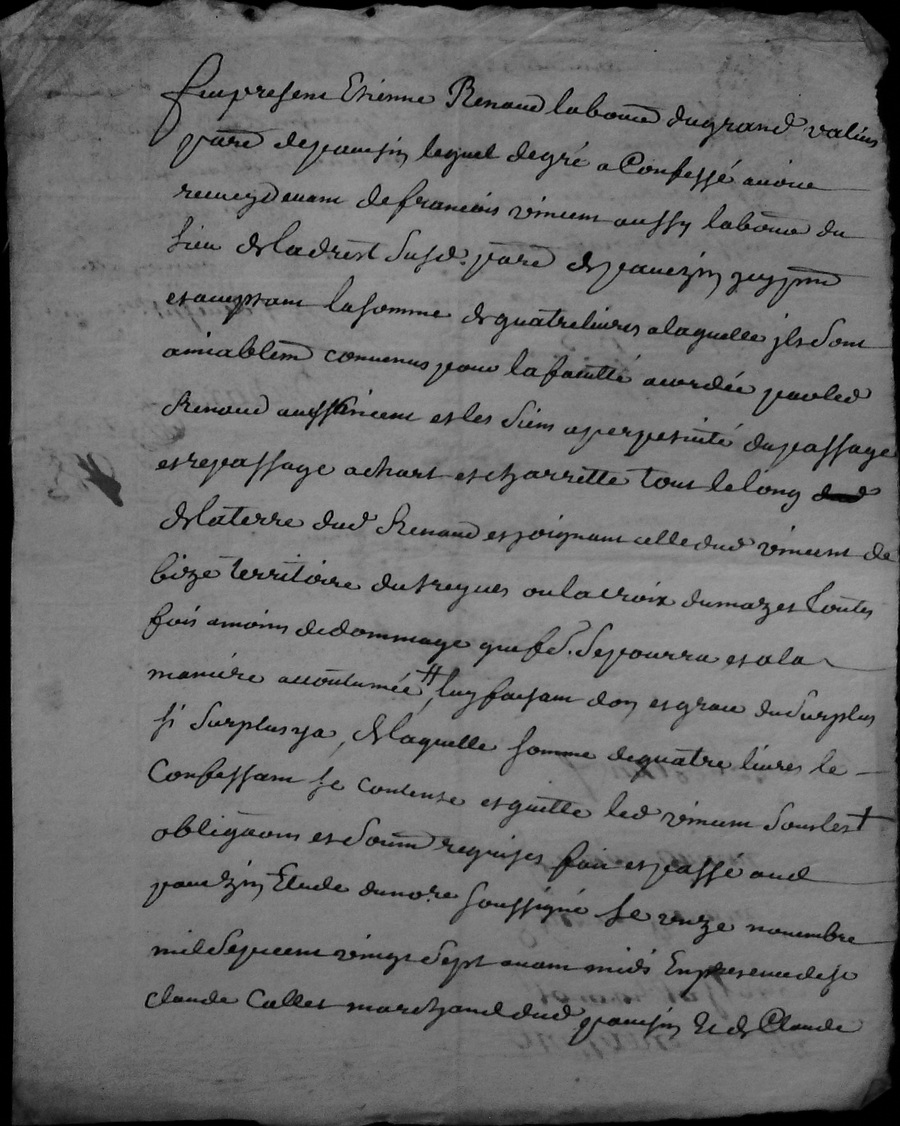 fut present Etienne Renaud laboure dugrand valin
paroe depaveysin lequel degré a Confessé avoir
receu cydevant defrancois vincent aussy laboure du
lieu deladrest susd. paroe depavezin icy pnt
et acceptant lasomme dequatre livres alaquelle ils sont
amiablemt convenus pour lafaculté acordée par led
Renaud audt vincent et les siens aperpetuité dupassage
et repassage achart et charrette tout lelong
delaterre dud Renaud et joignant celle dud vincent de
bize territoire du ou lacroix dumazet toutes
fois amoins dedommage que fe. sepourra et ala
maniere accoutumée # luy faisant don et grace dusurplus
si surplus ya, delaquelle somme dequatre livres le
Confessant se contente et quitte led vincent sous les +
obligaons et soum requises fait et passé aud
pavezin Etude du nore soussigné le unze novembre
mil sept cent vingt sept avant midi Enpresence de sr
claude Callet marchand dud paveysin Et de Claude